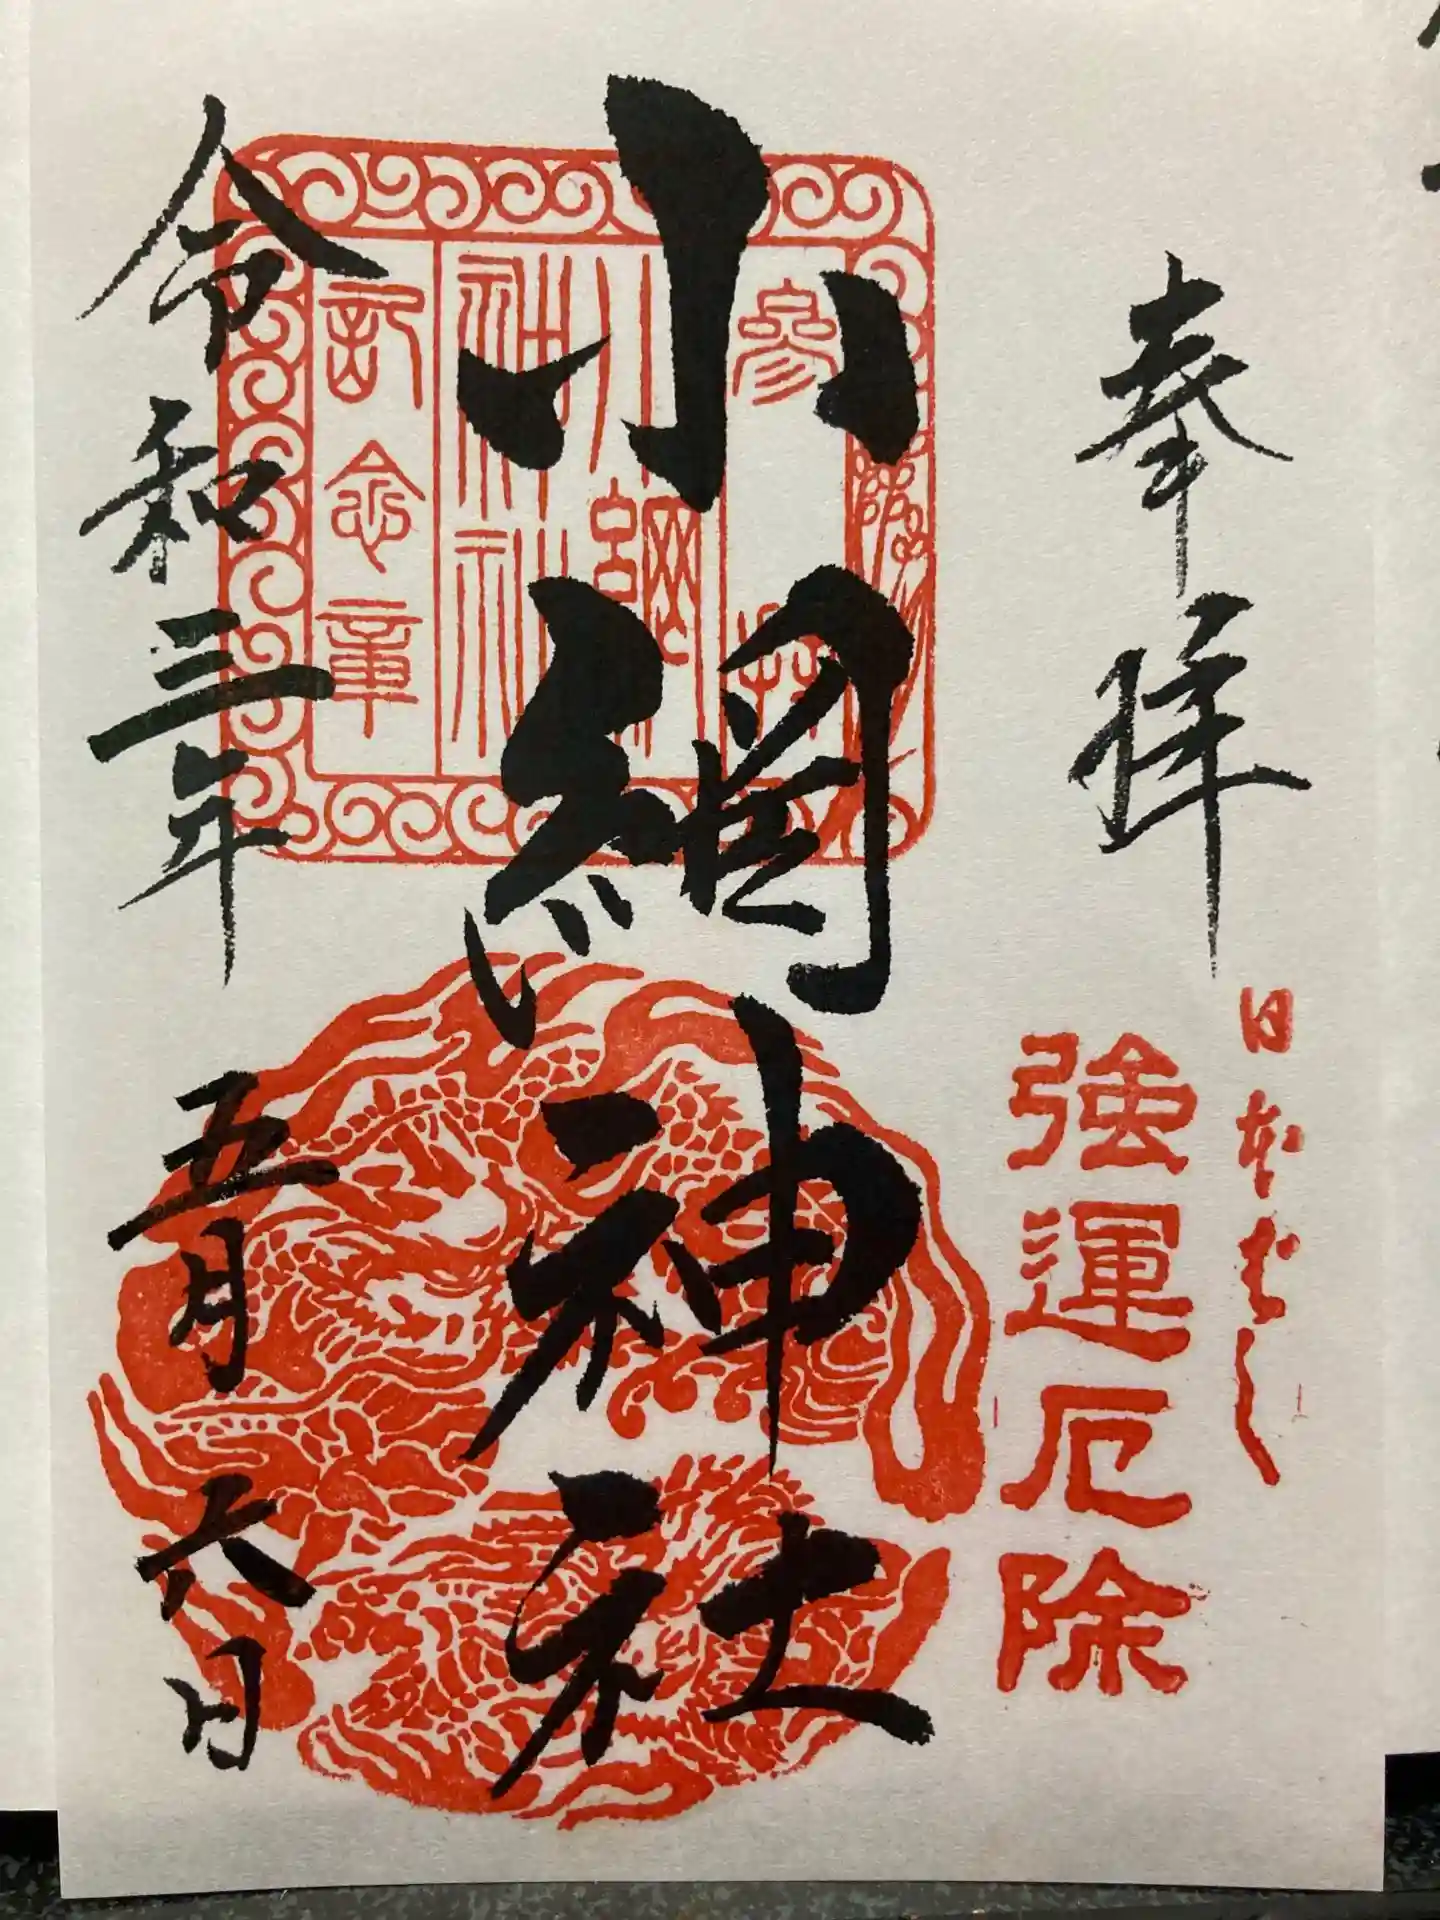 奉拝
日本ばし
強運厄除
小網神社
参拝
小網
神社
記念章
令和三年五月六日